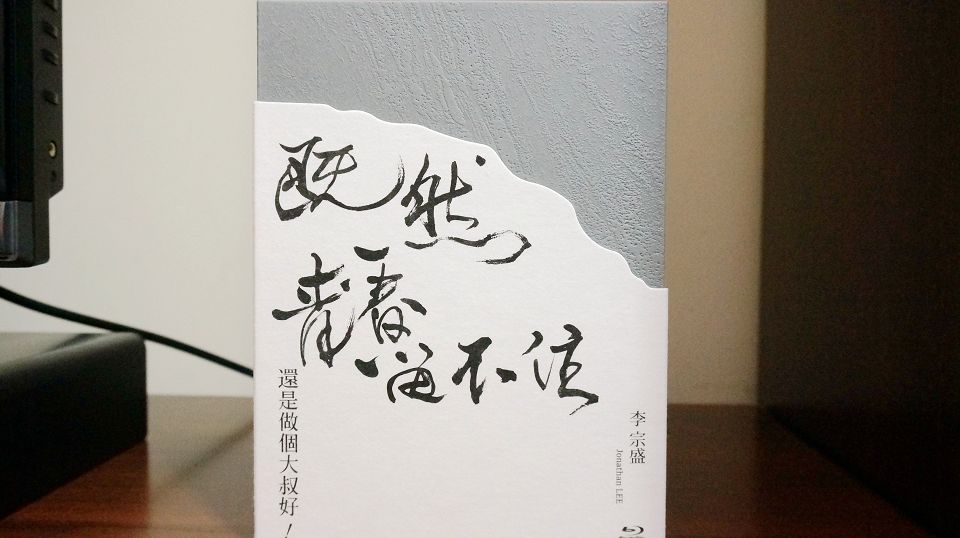 既然
青春
留不住
還是做個大叔好！
李宗盛
Jonathan LEE